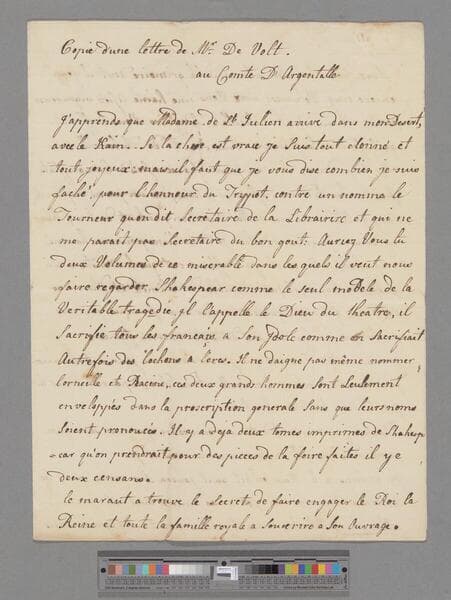 Copie d'une lettre de Mr. De Volt.
au Comte D'Argentalle
J'apprends que Madame de St. Julien arrive dans mon Desert,
avec le Kain. Si la chose est vraie je suis tout etonné et
tout joyeux mais il faut que je vous dise combien je suis
faché, pour l'honneur du Trippot, contre un nomma le
Tourneur qu'on dit Secretaire de la Librairie et qui ne
me parait pas Secretaire du bon gout: Auriez Vous lu
deux Volumes de ce miserable dans les quels il veut nous
faire regarder Shakespear comme le seul modèle de la
Veritable tragedie, il l'appelle le Dieu du theatre, il
Sacrifie tous les français a son Idole comme on sacrifiait
Autrefois des Cochons a Ceres. Il ne daigne pas même nommer
Corneille et Racine, ces deux grands hommes sont Seulement
enveloppés dans la proscription generale sans que leurs noms
soient prononcés. Il y a deja deux tomes imprimés de Shakesp
-ear qu'on prendrait pour des pieces de la foire faites il y a
deux cens ans.
Ce maraut a trouvé le Secret de faire engager le Roi la
Reine et toute la famille royale a Souscrire a son Ouvrage.